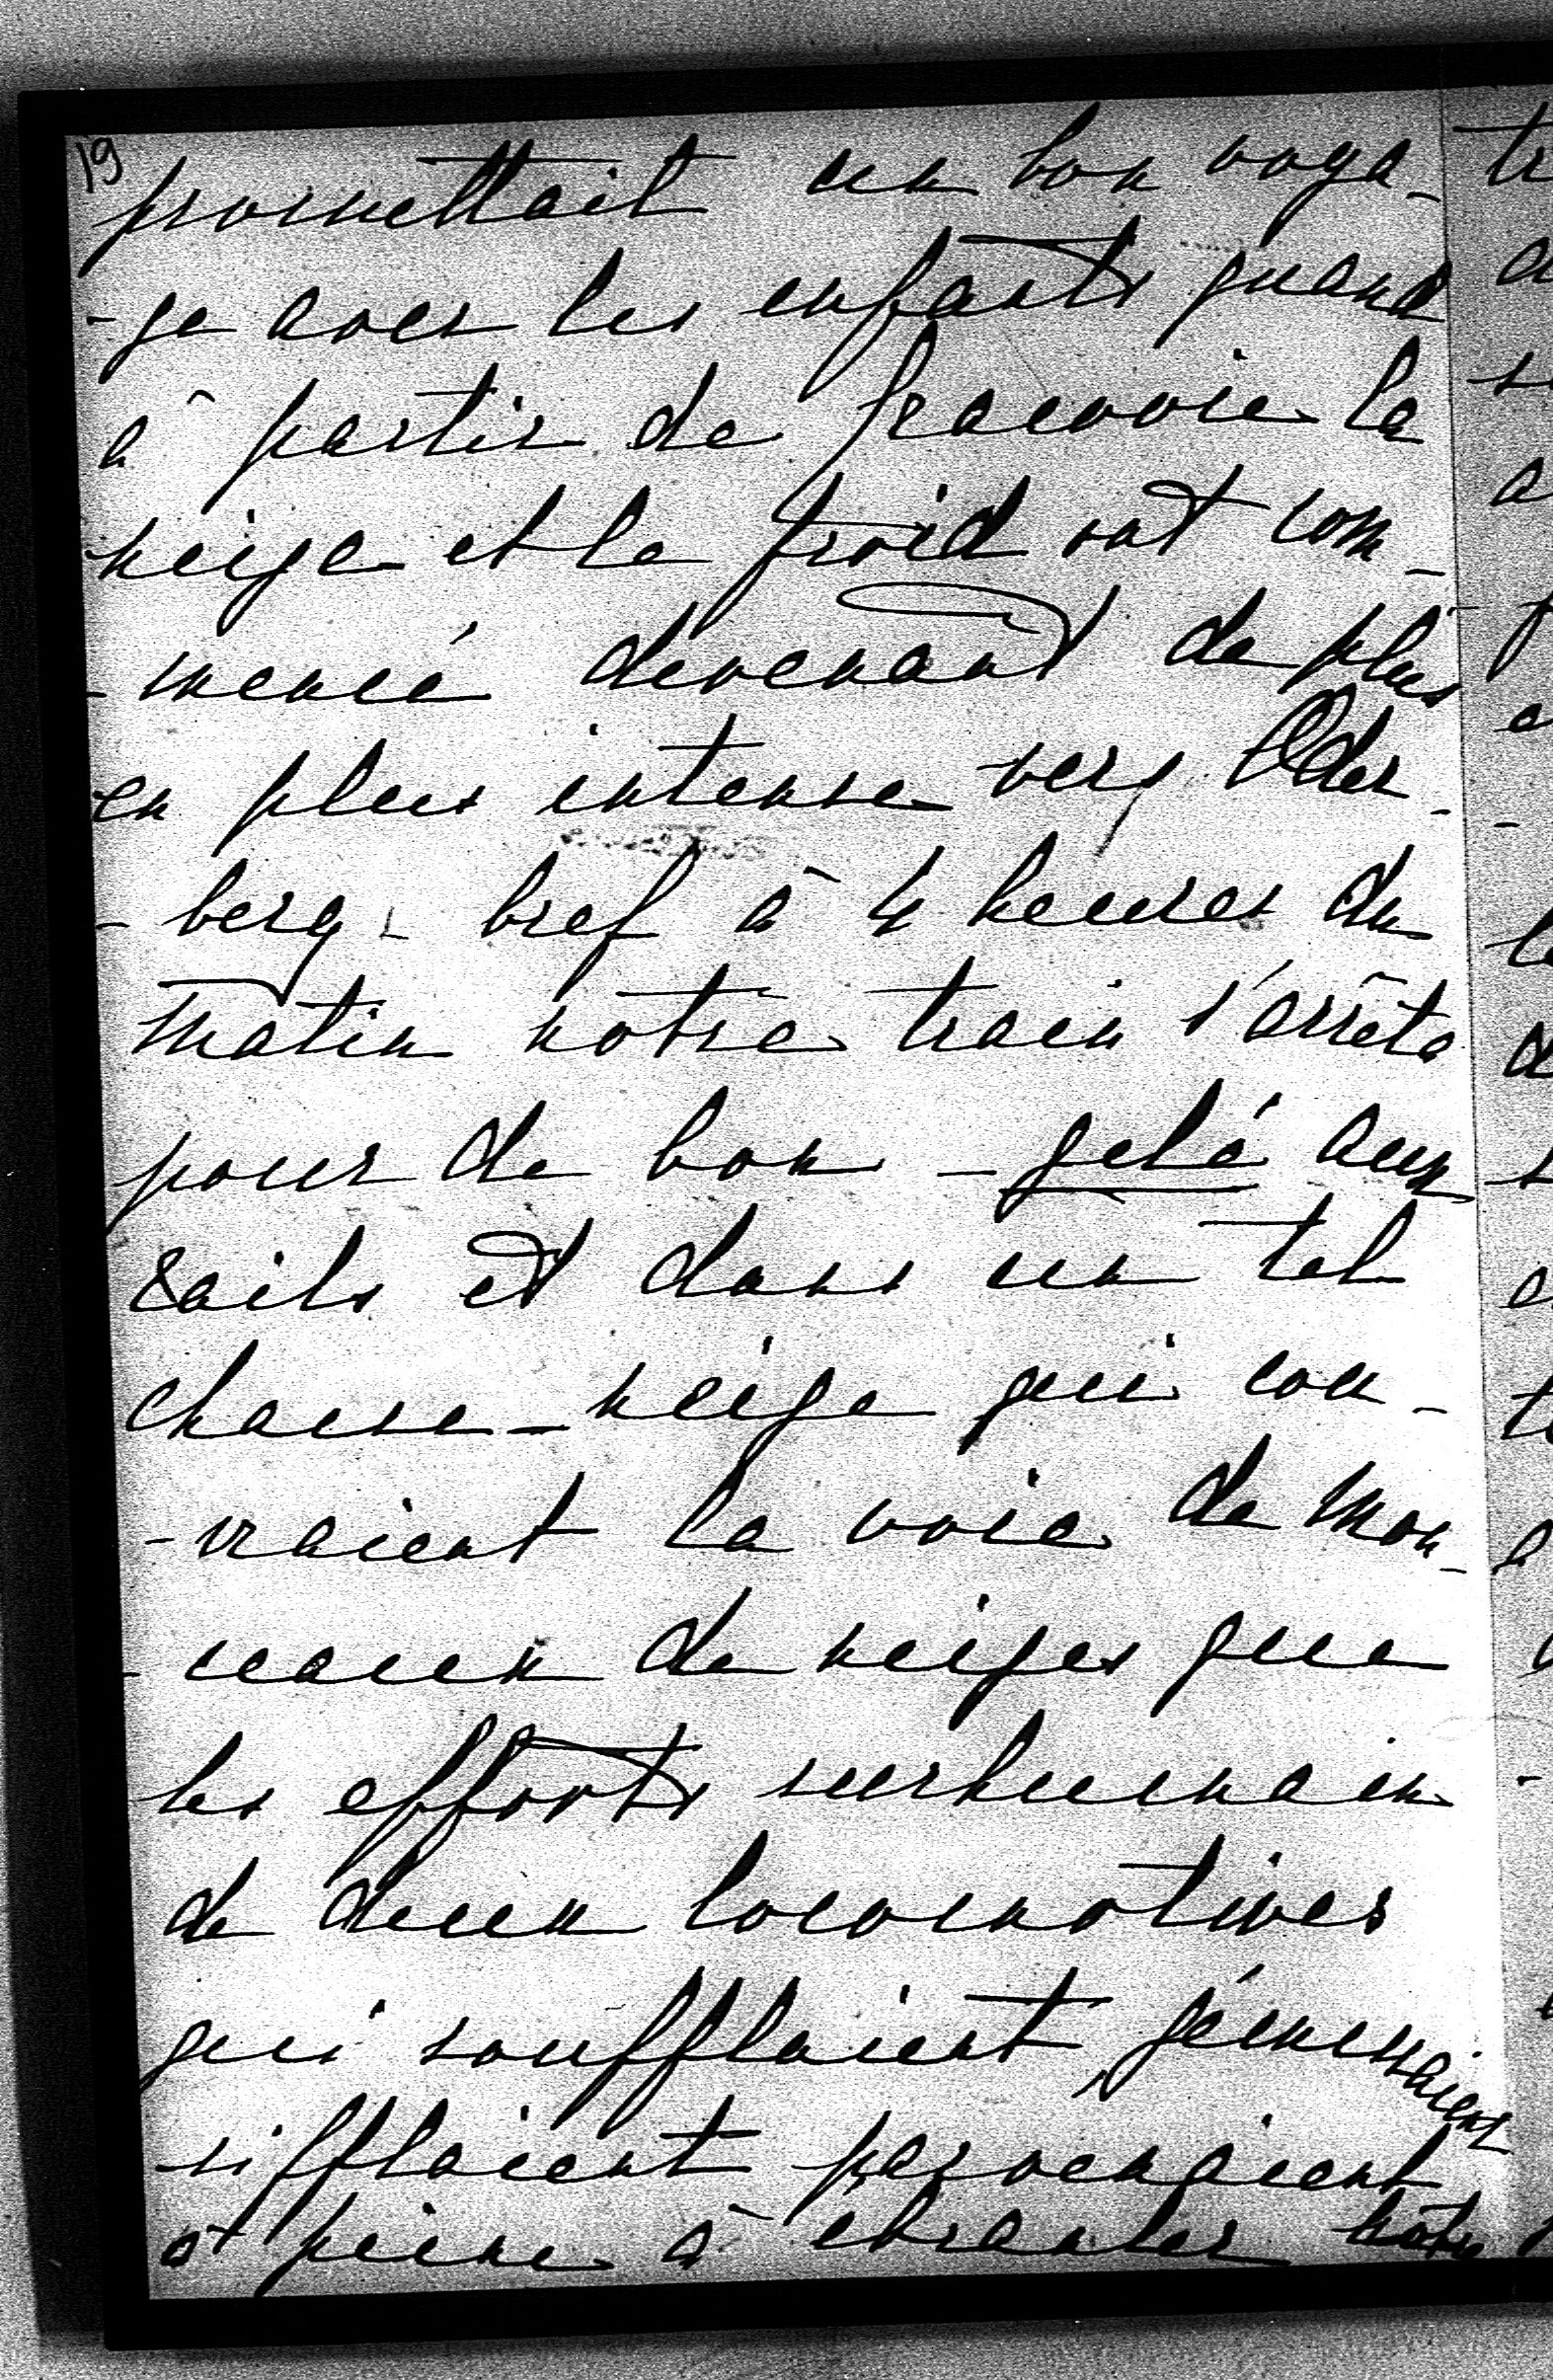 19
promettait un bon voya-
-ge avec les enfants quand
à partir de Cracovie la
neige et le froid ont com-
-mencé devenant de plus
en plus intense vers Oder-
-berg - bref à 4 heures du
matin notre train s'arrêta
pour de bon - gelé aux
rails et dans un tel
chasse-neige qui cou-
-vraient la voie de mon-
-ceaux de neiges que
les efforts surhumain
de deux locomotives
qui soufflaient, gémissaient
sifflaient parvenaient
à peine à ébranler notre